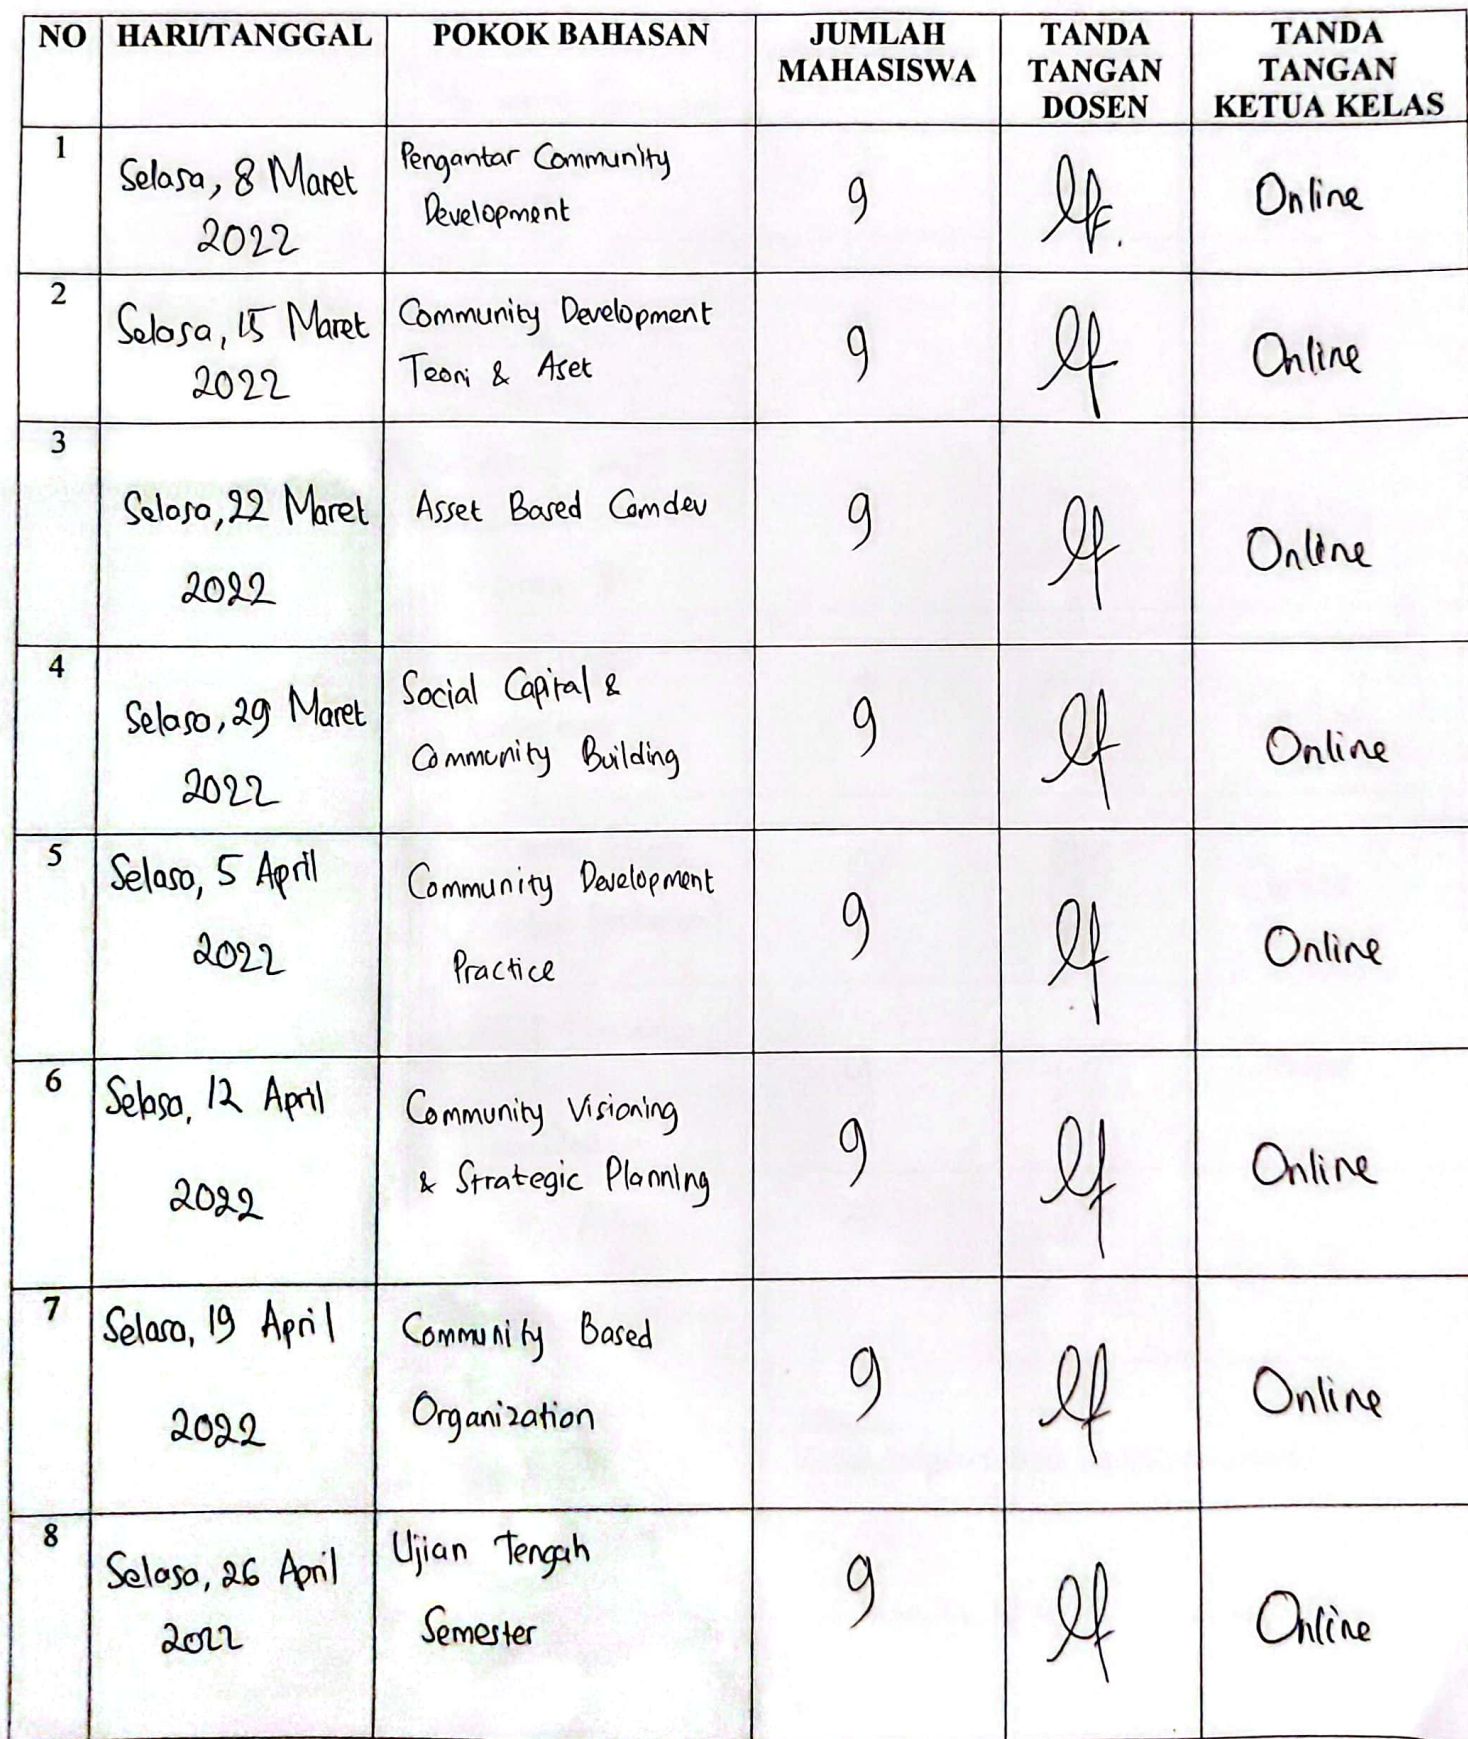 NO HARI/TANGGAL POKOK BAHASAN JUMLAH MAHASISWA TANDA TANGAN DOSEN TANDA TANGAN KETUA KELAS
1
Selasa, 8 Maret
2022
Pengantar Community
Development
9
Online
2
Selasa, 15 Maret
2022
Community Development
Teori & Aset
9
Online
3
Selasa, 22 Maret
2022
Asset Based Comdev
9
Online
4
Selasa, 29 Maret
2022
Social Capital &
Community Building
9
Online
5
Selasa, 5 April
2022
Community Development
Practice
9
Online
6
Selasa, 12 April
2022
Community Visioning
& Strategic Planning
9
Online
7
Selasa, 19 April
2022
Community Based
Organization
9
Online
8
Selasa, 26 April
2022
Ujian Tengah
Semester
9
Online